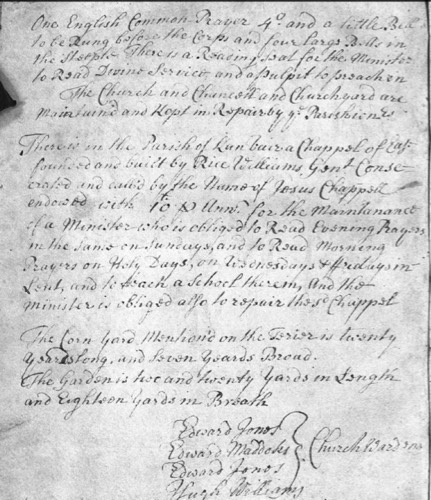 One English Common Prayer 4o. and a little Bell
to be Rung before the Corps and four large Bells in
the Steeple. There is a Reading seat for the Minister
to Read Divine Service, and a pulpit to preach in
The Church and Chancell and Churchyard are
Maintain'd and Kept in Repair by ye Parishioners
There is in the Parish of Lanbair a Chappel of Ease
founded and built by Rice Williams, Gent. Conse
crated and called by the Name of Jesus Chappell
endowed with for the Maintanance
of a Minister who is obliged to Read Evening Prayers
in the same on Sundays, and to Read Morning
Prayers on Holy Days, on Wednesdays & fridays in
Lent, and to teach a School therein, And the
Minister is obliged also to repair the sd. Chappel
The Corn Yard Mention'd on the Terier is twenty
Yeards long, and Seven Yeards Broad.
The Garden is two and twenty Yards in Length
and Eighteen Yards in Breath
Edward Jones
Edward Maddocks
Edward Jones
Hugh Williams
Church Wardens